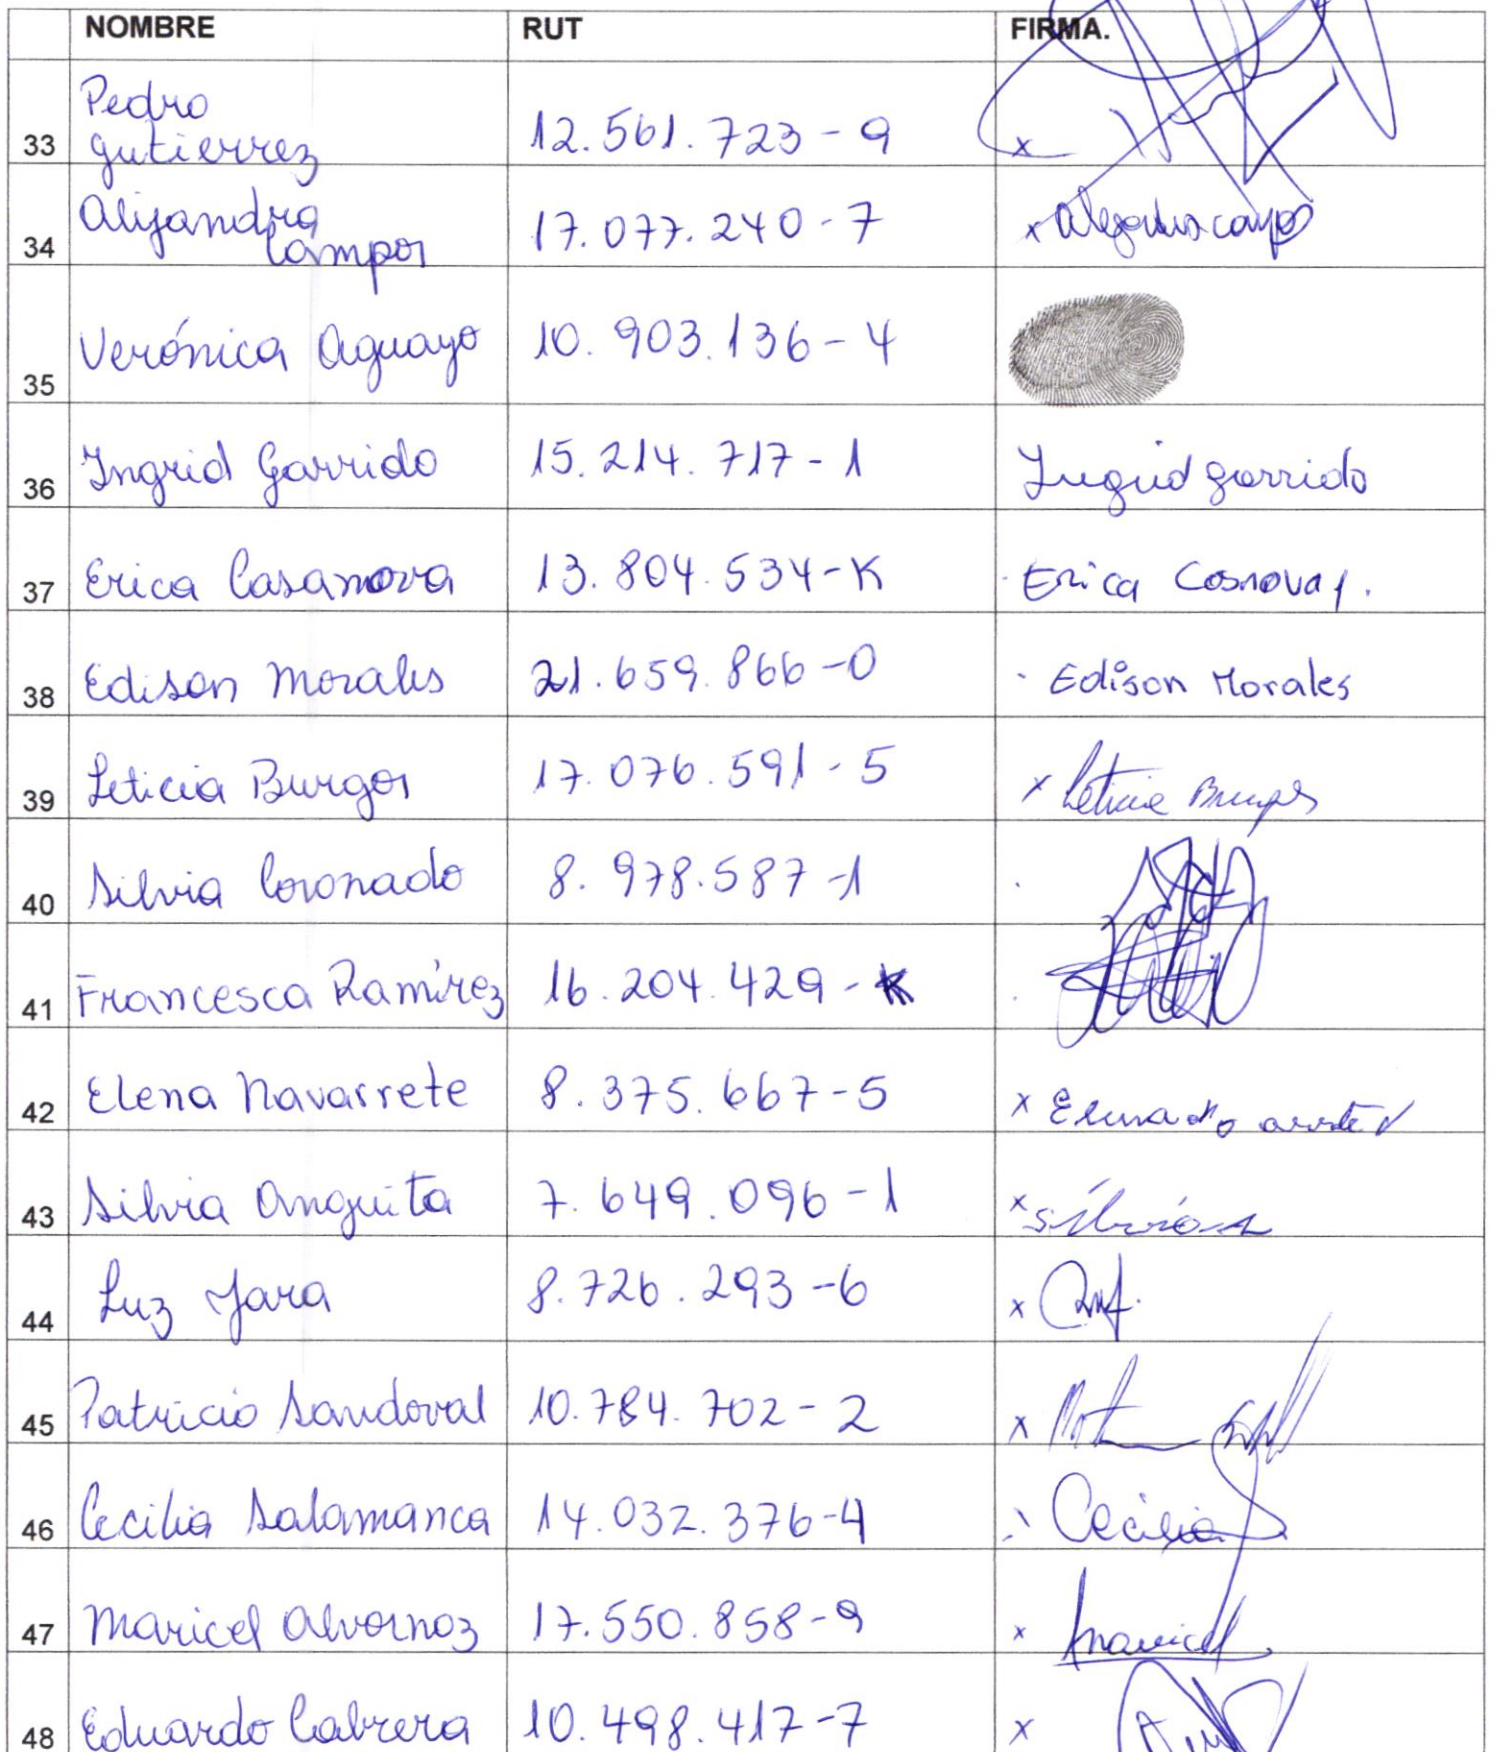 NOMBRE RUT FIRMA.
Pedro
33 Gutierrez 12.561.723-9 x
Alejandra
34 Campos 17.077.240-7 x Alejandra campos
35 Verónica Aguayo 10.903.136-4
36 Ingrid Garrido 15.214.717-1 Ingrid Garrido
37 Erica Casanova 13.804.534-K Erica Cosnova
38 Edison Morales 21.659.866-0 Edison Morales
39 Leticia Burgos 17.076.591-5 x Leticia Burgos
40 Silvia Coronado 8.978.587-1
41 Francesca Ramírez 16.204.429-K
42 Elena Navarrete 8.375.667-5 x
43 Silvia Anguita 7.649.096-1 x Silvia
44 Luz Jara 8.726.293-6 x
45 Patricio Sandoval 10.784.702-2 x
46 Cecilia Salamanca 14.032.376-4 Cecilia
47 Maricel Alvornoz 17.550.858-9 x Maricel
48 Eduardo Cabrera 10.498.417-7 x